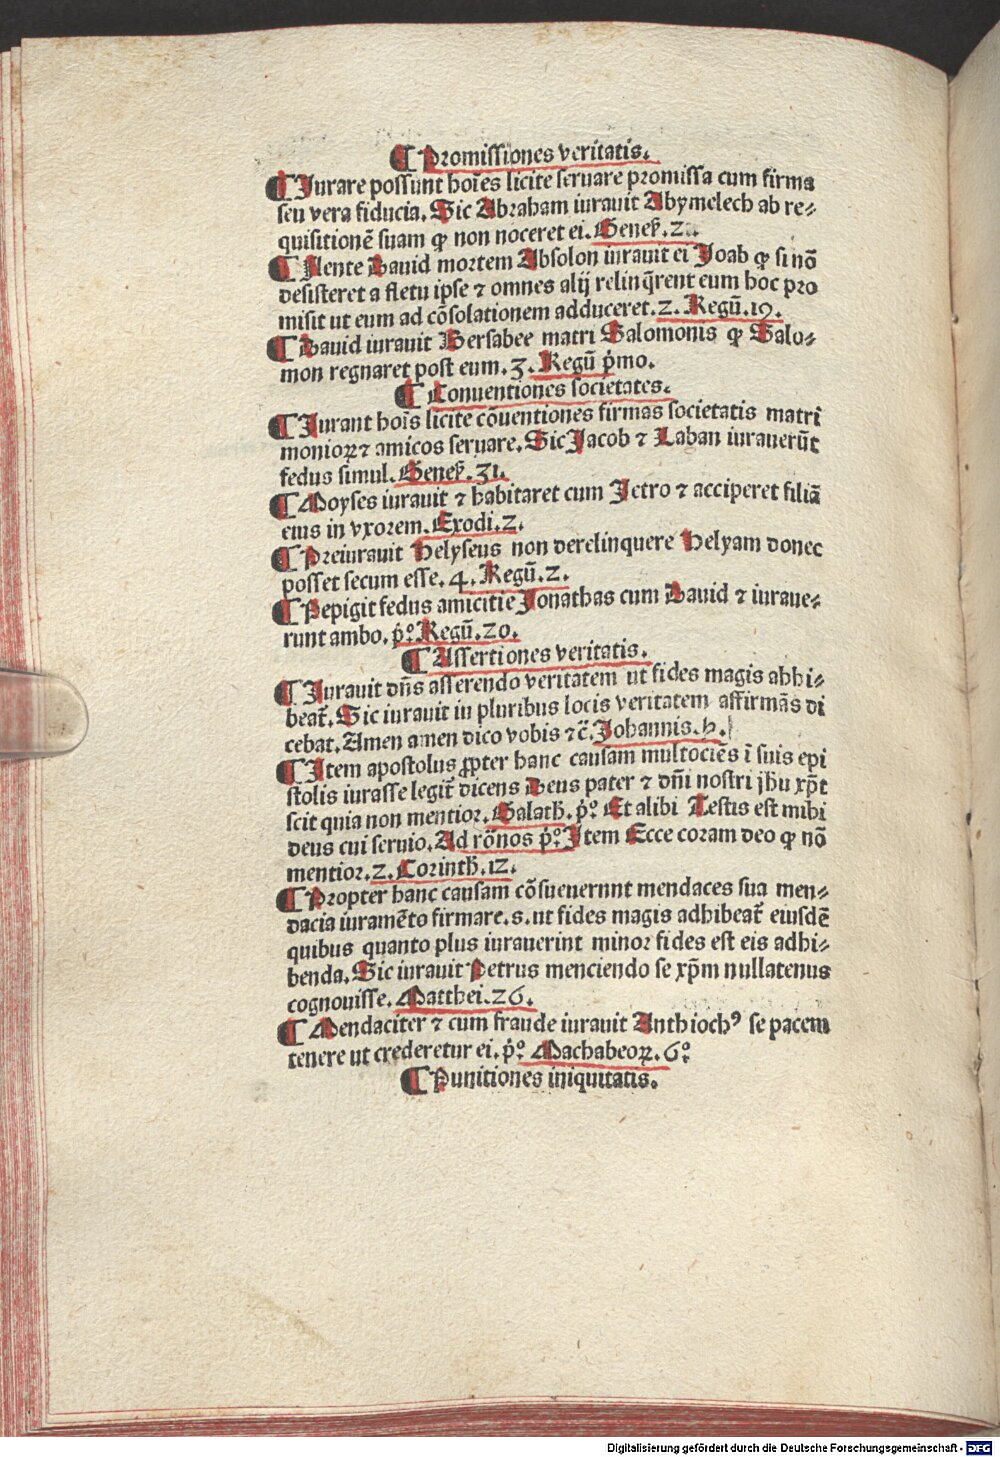 ¶ Promissiones veritatis.
¶ Iurare possunt hoīes licite seruare promissa cum firma
seu vera fiducia. Sic Abraham iurauit Abymelech ab re⸗
quisitionē suam ꝙ non noceret ei. Geneẜ.
¶ Flente Dauid mortem Absolon iurauit ei Joab ꝙ si nō
desisteret a fletu ipse ⁊ omnes alij relinq̄rent eum hoc pro
misit ut eum ad cōsolationem adduceret. 2. Regū. 19.
¶ Dauid iurauit Bersabee matri Salomonis ꝙ Salo⸗
mon regnaret post eum. 3. Regū p̄mo.
¶ Conuentiones societates.
¶ Iurant hoīs licite cōuentiones firmas societatis matri
monioꝝ ⁊ amicos seruare. Sic Jacob ⁊ Laban iurauerūt
fedus simul. Geneẜ. 31.
¶ Moyses iurauit ⁊ habitaret cum Jetro ⁊ acciperet filiā
eius in vxorem. Exodi. 2.
¶ Preiurauit Helyseus non derelinquere Helyam donec
posset secum esse. 4. Regū. 2.
¶ Pepigit fedus amicitie Jonathas cum Dauid ⁊ iuraue⸗
runt ambo. p̊. Regū. 20.
¶ Assertiones veritatis.
¶ Iurauit dn̄s asserendo veritatem ut fides magis abhi⸗
beat᷑. Sic iurauit in pluribus locis veritatem affirmās di
cebat. Amen amen dico vobis ⁊c̄. Johannis. h.
¶ Item apostolus ꝓpter hanc causam multociēs ī suis epi
stolis iurasse legit᷑ dicens Deus pater ⁊ dn̄i nostri jhu xp̄t
scit quia non mentior. Galath. p̊. Et alibi Testis est mihi
deus cui seruio. Ad rōnos p̊. Item Ecce coram deo ꝙ nō
mentior. 2. Corinth. 12.
¶ Propter hanc causam cōsueuernnt mendaces sua men⸗
dacia iuramēto firmare. s. ut fides magis adhibeat᷑ eiusdē
quibus quanto plus iurauerint minor fides est eis adhi⸗
benda. Sic iurauit Petrus menciendo se xp̄m nullatenus
cognouisse. Matthei. 26.
¶ Mendaciter ⁊ cum fraude iurauit Anthiochꝰ se pacem
tenere ut crederetur ei. p̊. Machabeoꝝ. 6°.
¶ Punitiones iniquitatis.
Digitalisierung gefördert durch die Deutsche Forschungsgemeinschaft - DFG